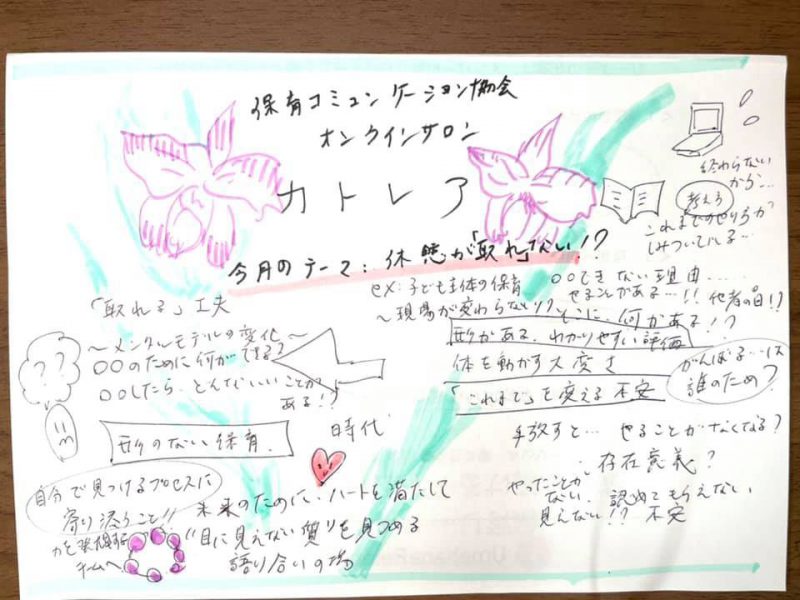 保育コミュニケーション協会
オンラインサロン
カトレア
今月のテーマ：休憩が「取れ」ない！？
終わらない
から…
考えろ
これまでのやり方が
しみついてる…
ex:子ども主体の保育
〜現場が変わらない！？
〇〇できない理由……
やることがある…!!
他者の目!?
そこに、何がある!?
形がある、わかりやすい評価
体を動かす大変さ
「これまで」を変える不安
がんばる…は
誰のため？
手放すと…やることがなくなる？
存在意義？
やったことが
ない、
見えない!?
認めてもらえない
不安
「取れる」工夫
〜メンタルモデルの変化〜
〇〇のために何ができる？
〇〇したら、どんないいことが
ある!?
??
形のない保育
時代
自分で見つけるプロセスに
寄り添うこと!!
力を発揮
チームへ
未来のために、ハートを満たして
"目に見えない質"を見つめる
語り合いの場